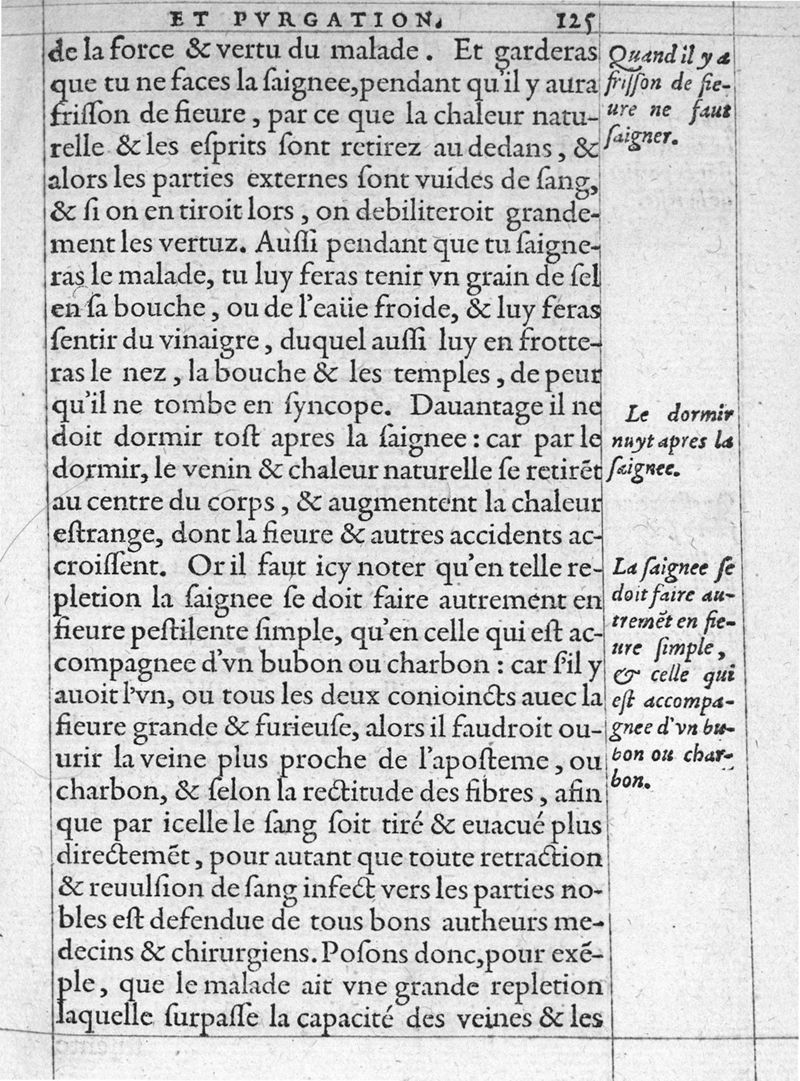 ET PVRGATION. 125
de la force & vertu du malade. Et garderas
que tu ne faces la ſaignee, pendant qu'il y aura
friſſon de fieure, par ce que la chaleur natu-
relle & les eſprits ſont retirez au dedans, &
alors les parties externes ſont vuides de ſang,
& ſi on en tiroit lors, on debiliteroit grande-
ment les vertuz. Auſſi pendant que tu ſaigne-
ras le malade, tu luy feras tenir vn grain de ſel
en ſa bouche, ou de l'eaüe froide, & luy feras
ſentir du vinaigre, duquel auſſi luy en frotte-
ras le nez, la bouche & les temples, de peur
qu'il ne tombe en ſyncope. Dauantage il ne
doit dormir toſt apres la ſaignee: car par le
dormir, le venin & chaleur naturelle ſe retirẽt
au centre du corps, & augmentent la chaleur
eſtrange, dont la fieure & autres accidents ac-
croiſſent. Or il faut icy noter qu'en telle re-
pletion la ſaignee ſe doit faire autrement en
fieure peſtilente ſimple, qu'en celle qui eſt ac-
compagnee d'vn bubon ou charbon: car ſ'il y
auoit l'vn, ou tous les deux conioincts auec la
fieure grande & furieuſe, alors il faudroit ou-
urir la veine plus proche de l'apoſteme, ou
charbon, & ſelon la rectitude des fibres, afin
que par icelle le ſang ſoit tiré & euacué plus
directemẽt, pour autant que toute retraction
& reuulſion de ſang infect vers les parties no-
bles eſt defendue de tous bons autheurs me-
decins & chirurgiens. Poſons donc, pour exẽ-
ple, que le malade ait vne grande repletion
laquelle ſurpaſſe la capacité des veines & les
Quand il y a
friſſon de fie-
ure ne faut
ſaigner.
Le dormir
nuyt apres la
ſaignee.
La ſaignee ſe
doit faire au-
tremẽt en fie-
ure ſimple,
& celle qui
eſt accompa-
gnee d'vn bu-
bon ou char-
bon.